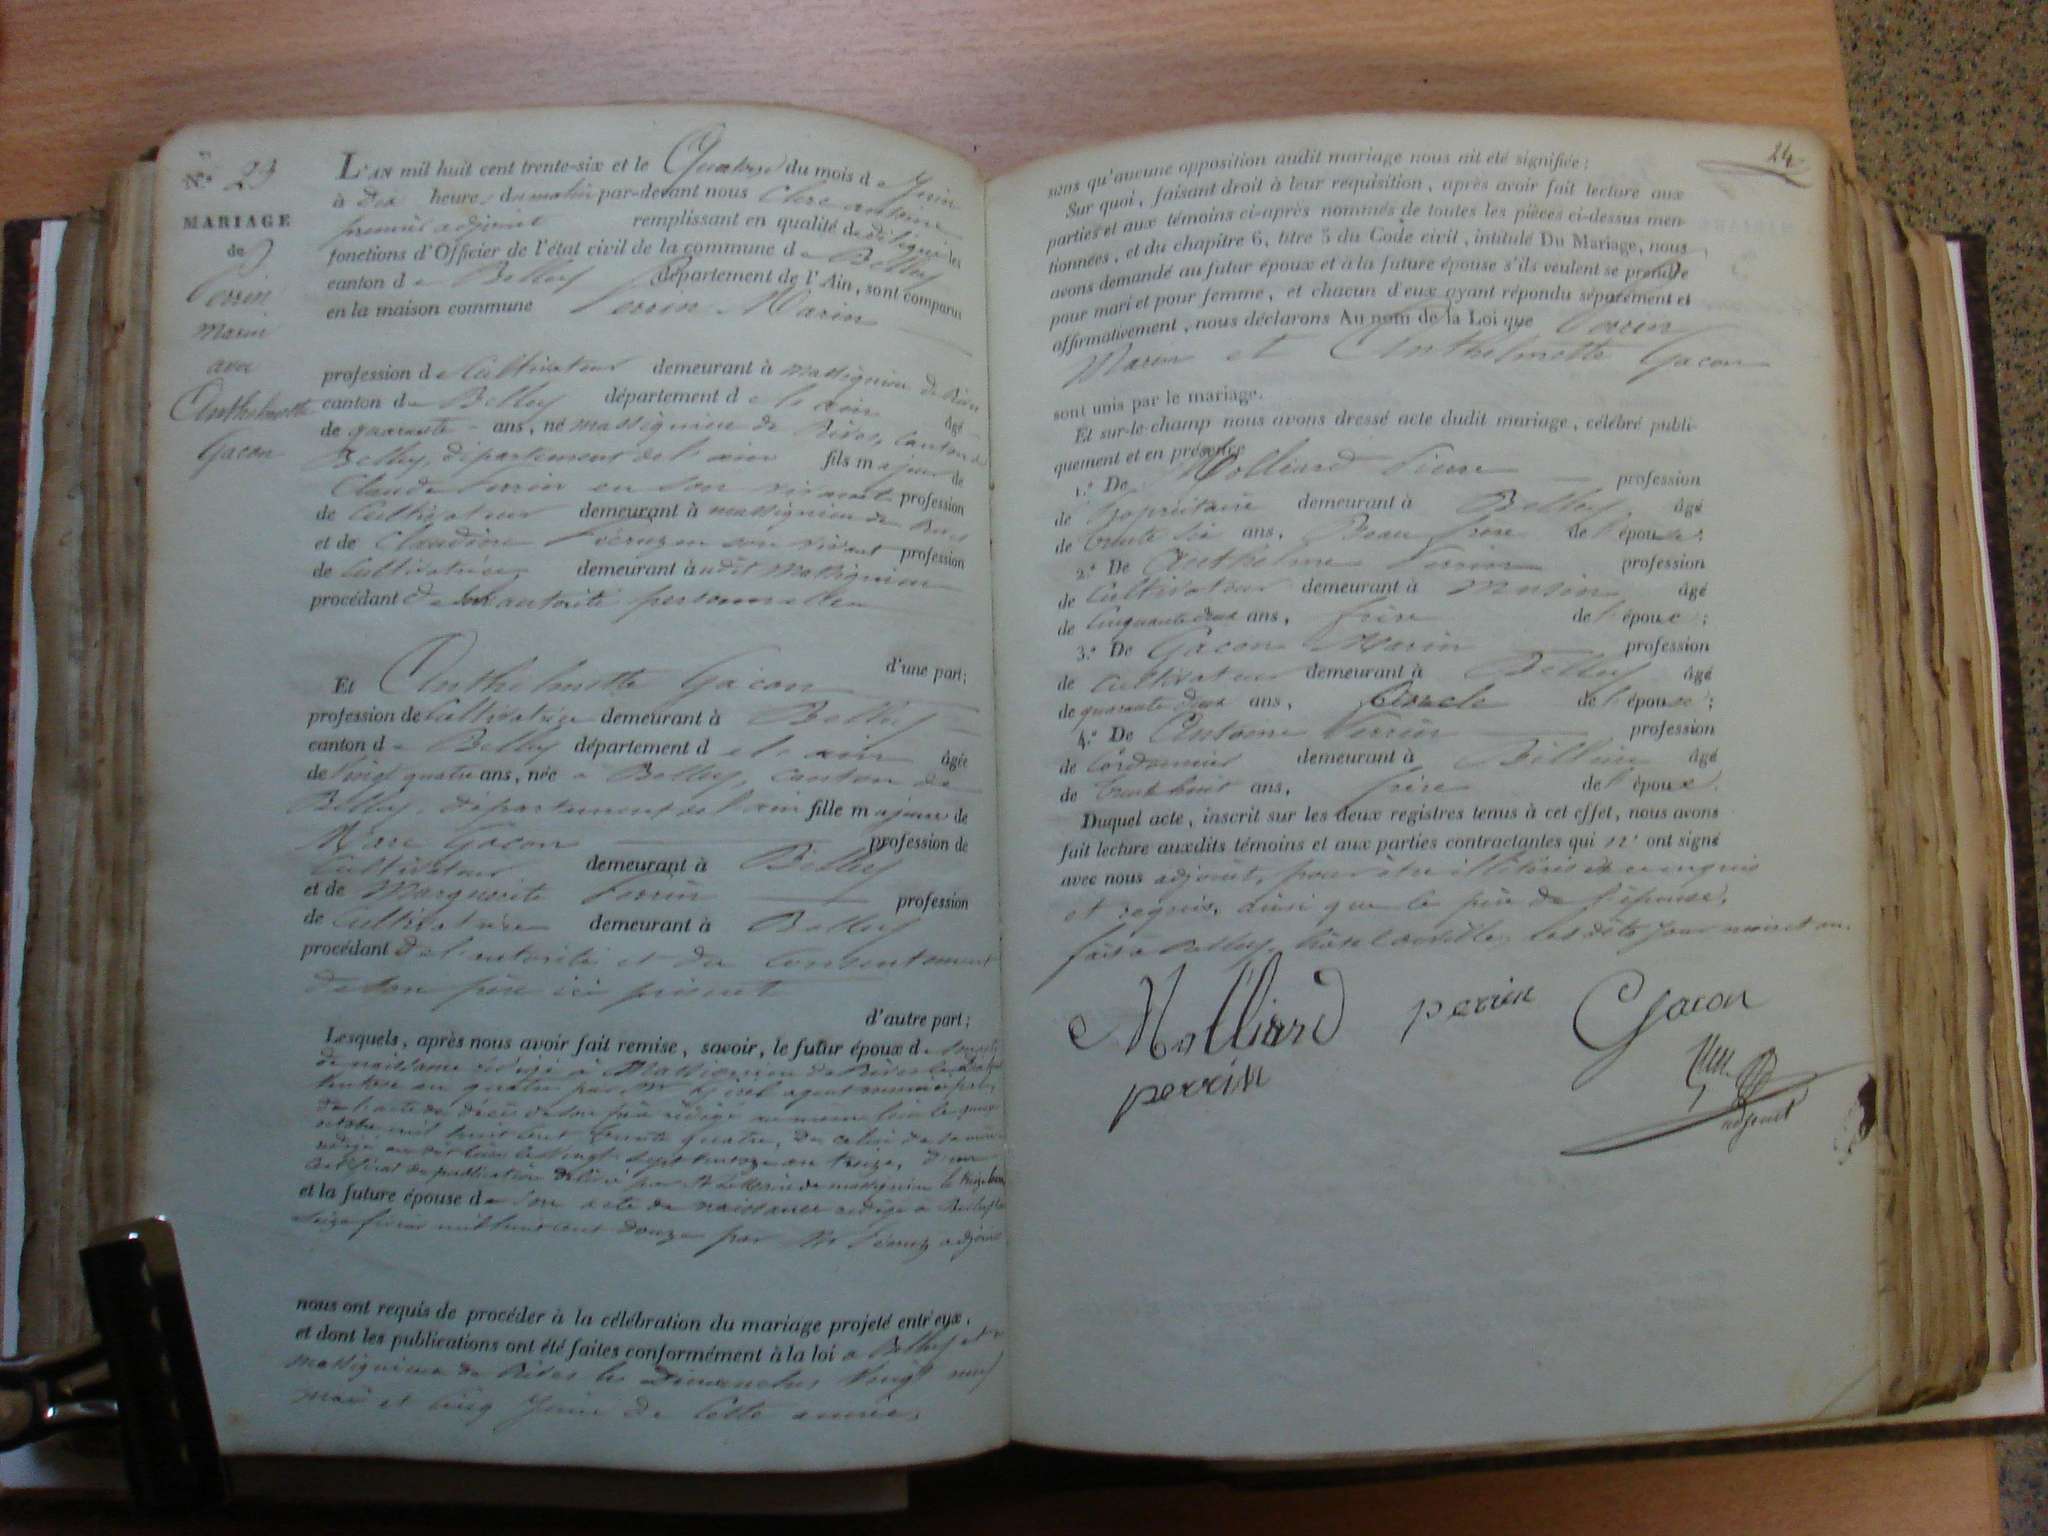 N.º 23
MARIAGE
de
Perrin
Marin
avec
Anthelmette
Gacon
L'AN mil huit cent trente-six et le Quatorze du mois de Juin
à dix heures du matin par-devant nous Clerc antoine
premier adjoint remplissant en qualité de délégué les
fonctions d'Officier de l'état civil de la commune de Belley
canton de Belley département de l'Ain, sont comparus
en la maison commune Perrin Marin
profession de Cultivateur demeurant à Massignieu de Rives
canton de Belley département de l'ain âgé
de quarante ans, né Massignieu de Rives, canton de
Belley, département de l'ain fils majeur de
Claude Perrin en son vivant profession
de Cultivateur demeurant à Massignieu de Rives
et de Claudine en son vivant profession
de Cultivatrice demeurant audit Massignieu
procédant de son autorité personnelle
d'une part;
Et Anthelmette Gacon
profession de Cultivatrice demeurant à Belley
canton de Belley département de l'ain âgée
de Vingt quatre ans, née à Belley, canton de
Belley, département de l'ain fille majeure de
Marc Gacon profession de
Cultivateur demeurant à Belley
et de Marguerite Perrin profession
de Cultivatrice demeurant à Belley
procédant de l'autorité et du consentement
de son père ici présent
d'autre part;
Lesquels, après nous avoir fait remise, savoir, le futur époux de
de naissance rédigé à Massignieu de Rives le
ventose an quatre par Mr agent municipal,
de l'acte de décès de son père rédigé au même lieu le
octobre mil huit cent trente quatre, de celui de sa mère
rédigé au dit lieu le vingt sept ventose an treize, d'un
certificat de publication délivré par Mr le Maire de Massignieu le
et la future épouse de son acte de naissance rédigé à Belley le
seize février mil huit cent douze par Mr adjoint
nous ont requis de procéder à la célébration du mariage projeté entr'eux,
et dont les publications ont été faites conformément à la loi à Belley et à
Massignieu de Rives les Dimanches Vingt neuf
mai et cinq Juin de cette année,
24
sans qu'aucune opposition audit mariage nous ait été signifiée;
Sur quoi, faisant droit à leur réquisition, après avoir fait lecture aux
parties et aux témoins ci-après nommés de toutes les pièces ci-dessus men-
tionnées, et du chapitre 6, titre 5 du Code civil, intitulé Du Mariage, nous
avons demandé au futur époux et à la future épouse s'ils veulent se prendre
pour mari et pour femme, et chacun d'eux ayant répondu séparément et
affirmativement, nous déclarons Au nom de la Loi que Perrin
Marin et Anthelmette Gacon
sont unis par le mariage.
Et sur-le-champ nous avons dressé acte dudit mariage, célébré publi-
quement et en présence
1.º De Molliard Pierre profession
de Propriétaire demeurant à Belley âgé
de trente six ans, Beau frère de l'épouse;
2.º De Anthelme Perrin profession
de Cultivateur demeurant à Musin âgé
de Cinquante deux ans, frère de l'époux;
3.º De Gacon Marin profession
de Cultivateur demeurant à Belley âgé
de quarante deux ans, Oncle de l'épouse;
4.º De Antoine Perrin profession
de Cordonnier demeurant à âgé
de trente huit ans, frère de l'époux.
Duquel acte, inscrit sur les deux registres tenus à cet effet, nous avons
fait lecture auxdits témoins et aux parties contractantes qui n'ont signé
avec nous adjoint, pour être illitérés de ce enquis
et requis, ainsi que le père de l'épouse,
fait à Belley, hôtel de ville, les dits jour mois et an.
Molliard perrin Gacon
perrin
adjoint